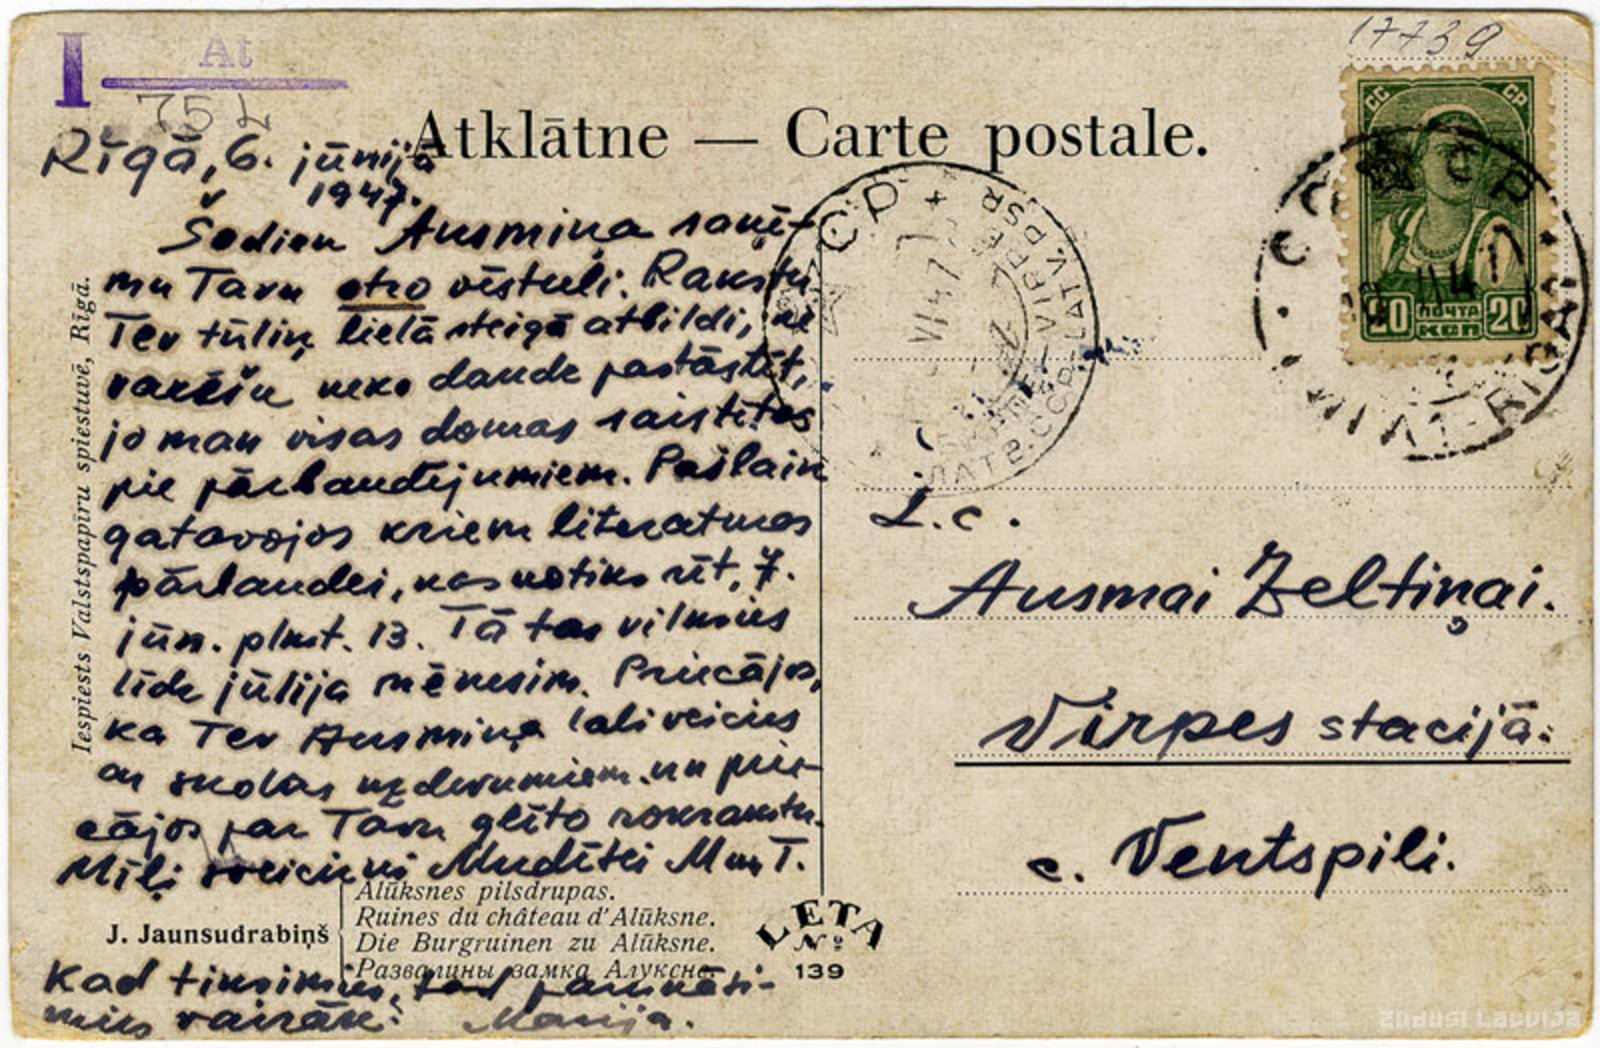 17739
I At
75 L
Atklātne — Carte postale.
Rīgā, 6. jūnijā
1947.
Šodien Ausmiņa saņē-
mu Tavu otro vēstuli. Rakstu
Tev tūliņ lielā steigā atbildi, ne
varēšu neko daudz pastāstīt,
jo man visas domas saistītas
pie pārbaudījumiem. Pašlaik
gatavojos krievu literaturas
pārbaudei, kas notiks rīt, 7.
jūn. plkst. 13. Tā tas vilksies
līdz jūlija mēnesim. Priecājos,
ka Tev Ausmiņa labi veicies
ar skolas uzdevumiem un prie-
cājos par Tavu glīto rokrakstu.
Mīļi sveicieni Mudītei M un T.
Kad tiksimies, tad parunāsi-
mies vairāk. Marija.
Iespiests Valstspapīru spiestuvē, Rīgā.
J. Jaunsudrabiņš
Alūksnes pilsdrupas.
Ruines du château d'Alūksne.
Die Burgruinen zu Alūksne.
Развалины замка Алуксне.
LETA
№
139
СС СР
20 ПОЧТА 20
КОП
L.c.
Ausmai Zeltiņai.
Virpes stacijā.
c. Ventspili.
СССР
VIRPE
LATV. PSR
ЛАТВ. ССР
СССР
RIGA
zudusi Latvija